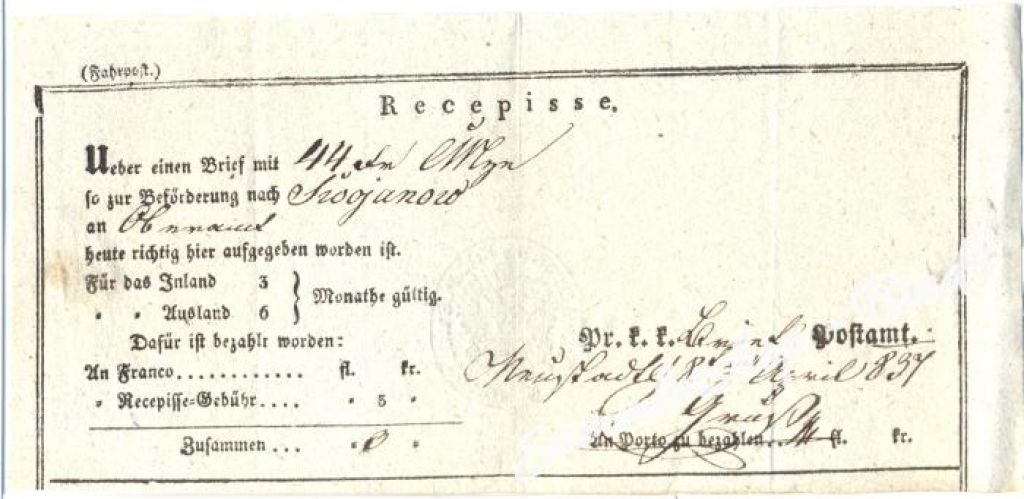 (Fahrpost.)
Recepisse.
Ueber einen Brief mit 44
so zur Beförderung nach
an Oberamt
heute richtig hier aufgegeben worden ist.
Für das Inland 3
" " Ausland 6 } Monathe gültig.
Dafür ist bezahlt worden:
An Franco............ fl. kr.
" Recepisse-Gebühr.... " 3 "
Zusammen ... " "
Pr. k. k. Postamt.
Neustadtl April 837
An Porto zu bezahlen. fl. kr.